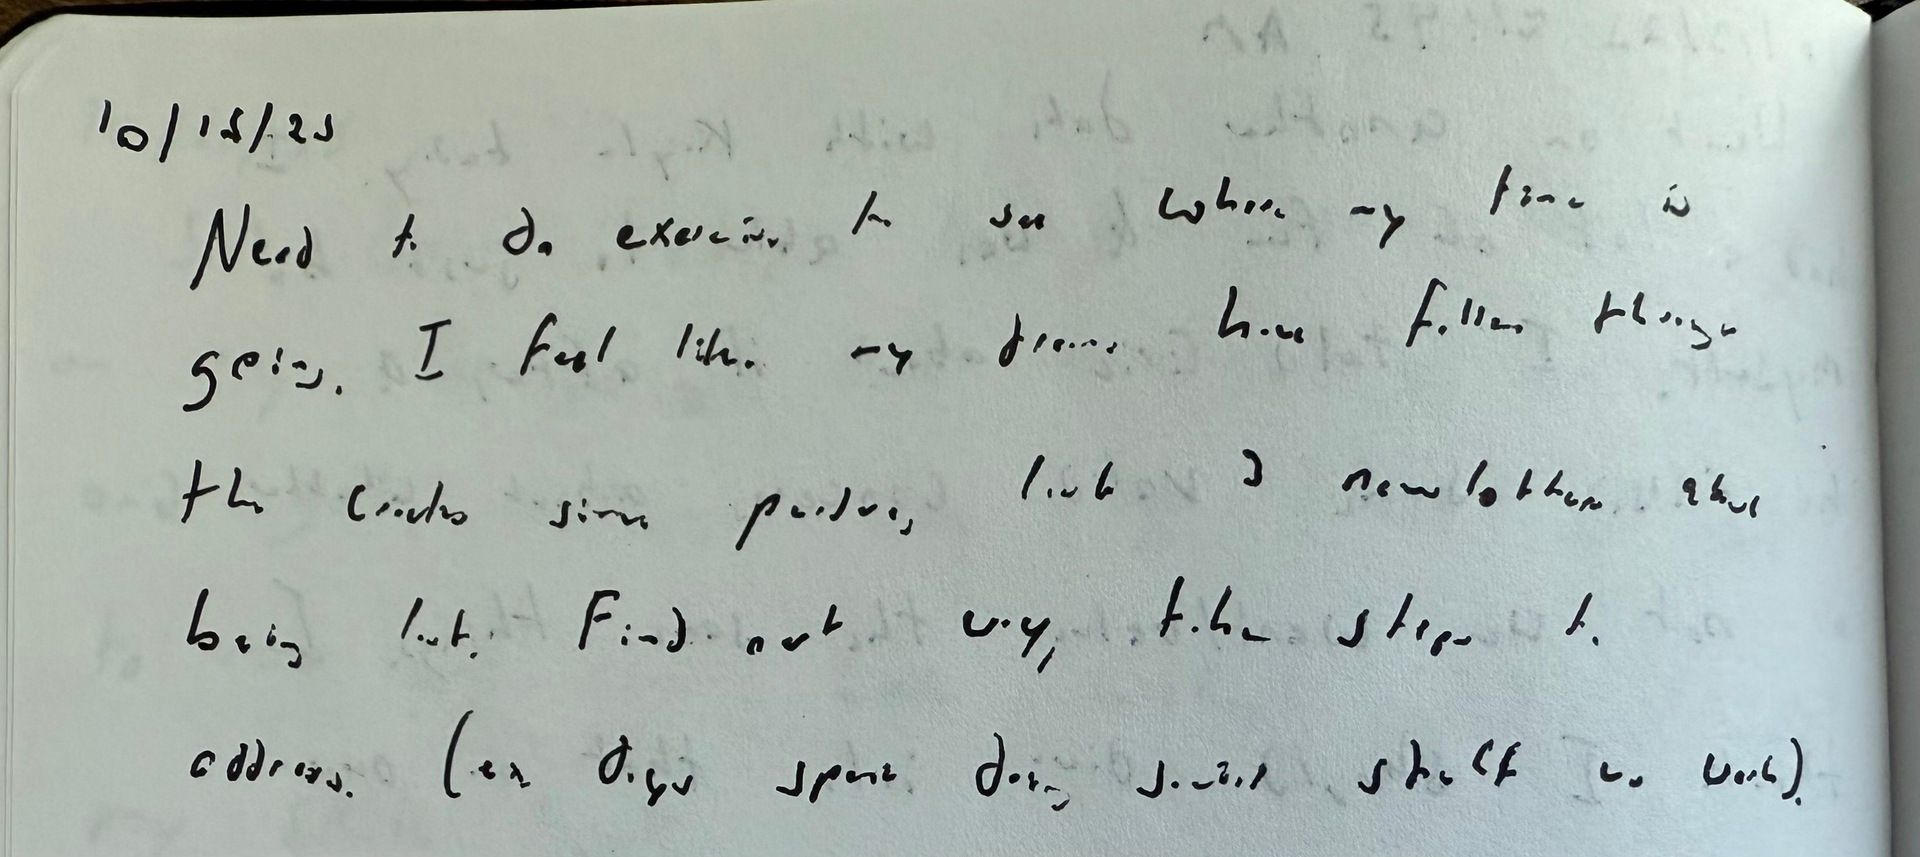 10/15/25
Need to do exercise to see where my time is
going. I feel like my dreams have fallen through
the cracks since
being lost. Find out why, take steps to
address. (ex days spent doing social stuff vs work).